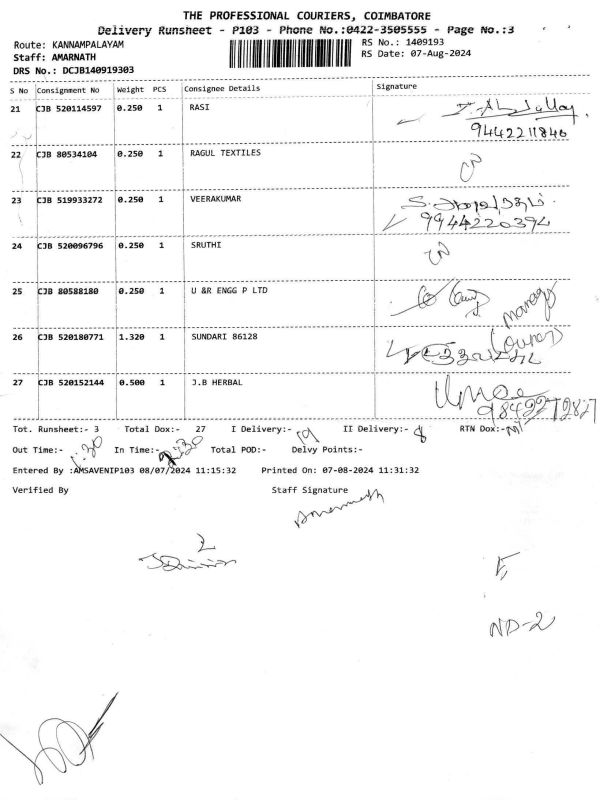 THE PROFESSIONAL COURIERS, COIMBATORE
Delivery Runsheet - P103 - Phone No.:0422-3505555 - Page No.:3
Route: KANNAMPALAYAM
RS No.: 1409193
Staff: AMARNATH
RS Date: 07-Aug-2024
DRS No.: DCJB140919303
S No Consignment No Weight PCS Consignee Details Signature
21 CJB 520114597 0.250 1 RASI
9442211846
22 CJB 80534104 0.250 1 RAGUL TEXTILES
23 CJB 519933272 0.250 1 VEERAKUMAR
9944220394
24 CJB 520096796 0.250 1 SRUTHI
25 CJB 80588180 0.250 1 U &R ENGG P LTD
26 CJB 520180771 1.320 1 SUNDARI 86128
27 CJB 520152144 0.500 1 J.B HERBAL
9842272827
Tot. Runsheet:- 3 Total Dox:- 27 I Delivery:- 19 II Delivery:- 8 RTN Dox:-
Out Time:- 1:30 In Time:- Total POD:- Delvy Points:-
Entered By :AMSAVENIP103 08/07/2024 11:15:32 Printed On: 07-08-2024 11:31:32
Verified By Staff Signature
2
ND-2